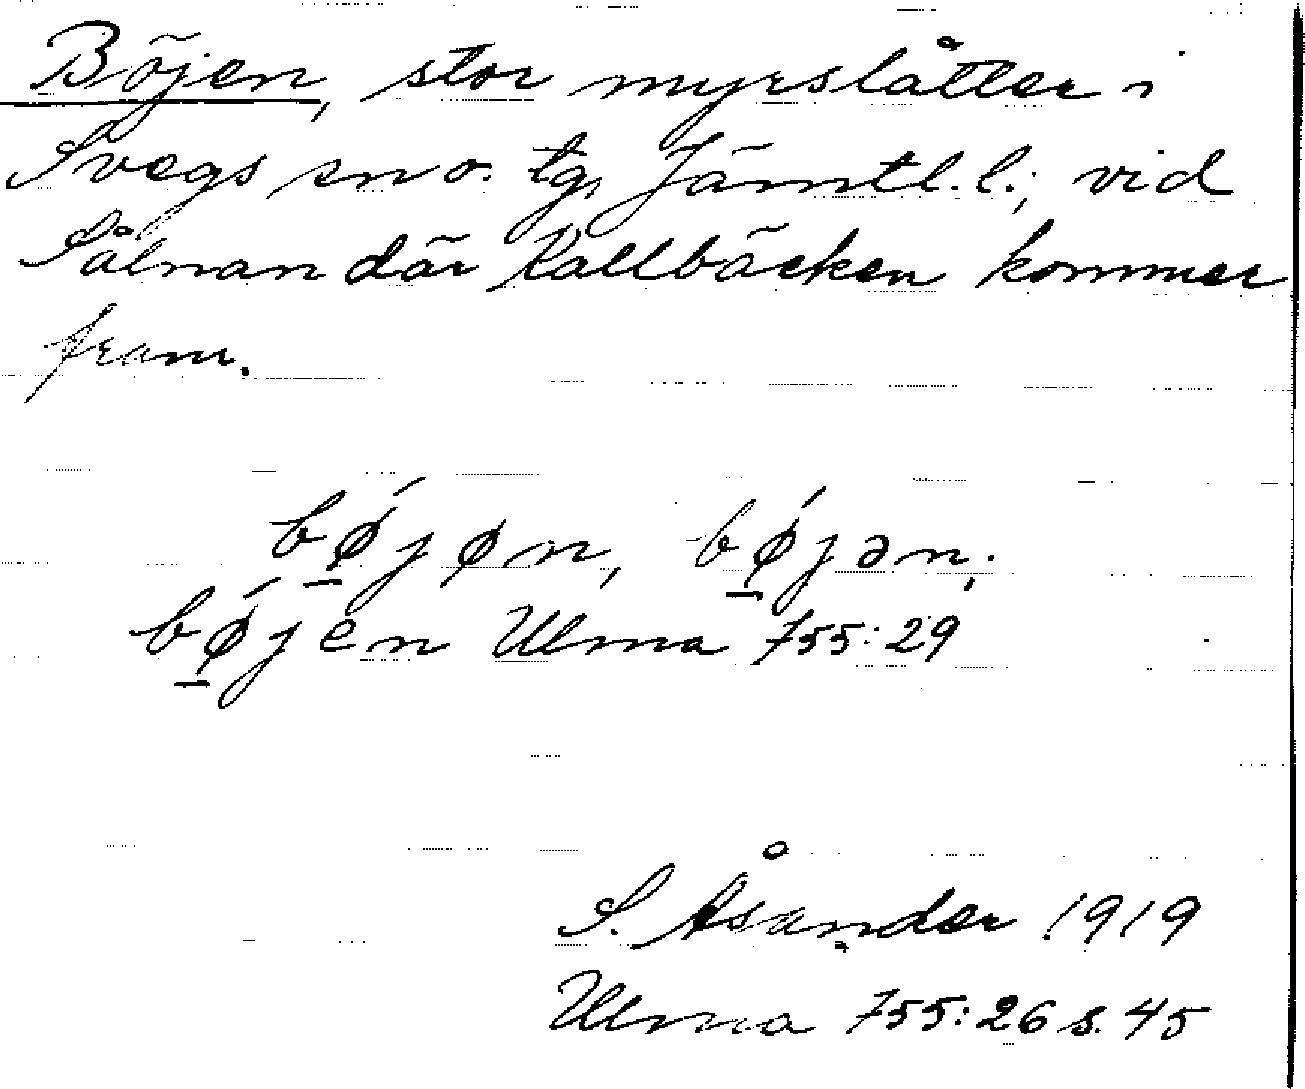 Böjen, stor myrslåtter i
Svegs sn o. tg, Jämtl. l.; vid
Sålnan där Kallbäcken kommer
fram.
bǿ̱jøn, bǿ̱jən,
bǿ̱jen Ulma 755:29
S. Åsander 1919
Ulma 755:26 s. 45